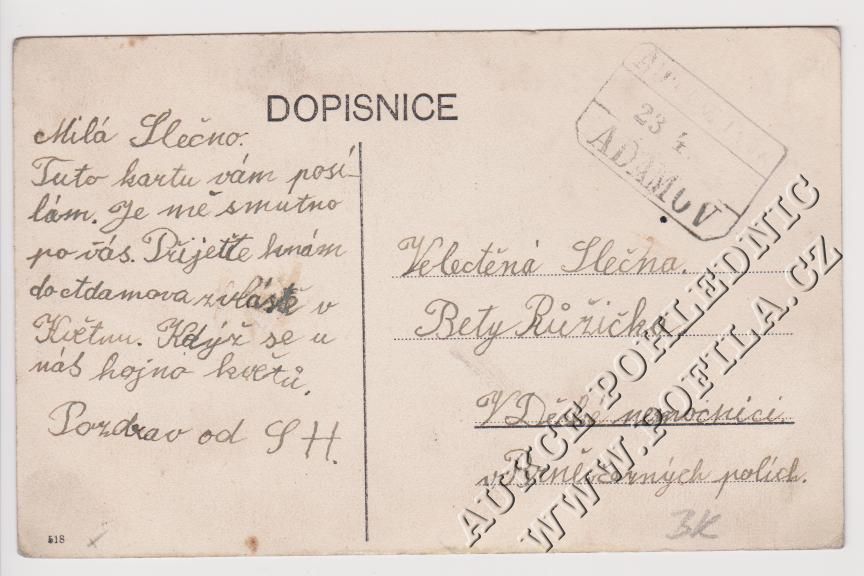 DOPISNICE
Milá Slečno.
Tuto kartu vám posí-
lám. Je mě smutno
po vás. Přijeďte knám
do Adamova zvláště v
Květnu. Když se u
nás hojno květů.
Pozdrav od S H.
23 4
ADAMOV
Velectěná Slečna.
Bety Růžička
V Dětské nemocnici.
v Brně černých polích.
518
3K
AUKCE POHLEDNIC
WWW.POFILA.CZ